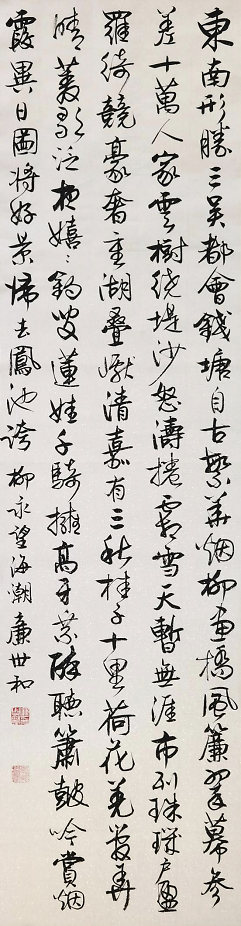 東南形勝三吳都會錢塘自古繁華烟柳畫橋風簾翠幕參
差十萬人家雲樹繞堤沙怒濤捲霜雪天暫無涯市列珠璣戶盈
羅綺競豪奢重湖疊巘清嘉有三秋桂子十里荷花羌管弄
晴菱歌泛夜嬉〻釣叟蓮娃千騎擁高牙乘醉聽簫鼓吟賞烟
霞異日圖將好景歸去鳳池誇 柳永望海潮 廉世和